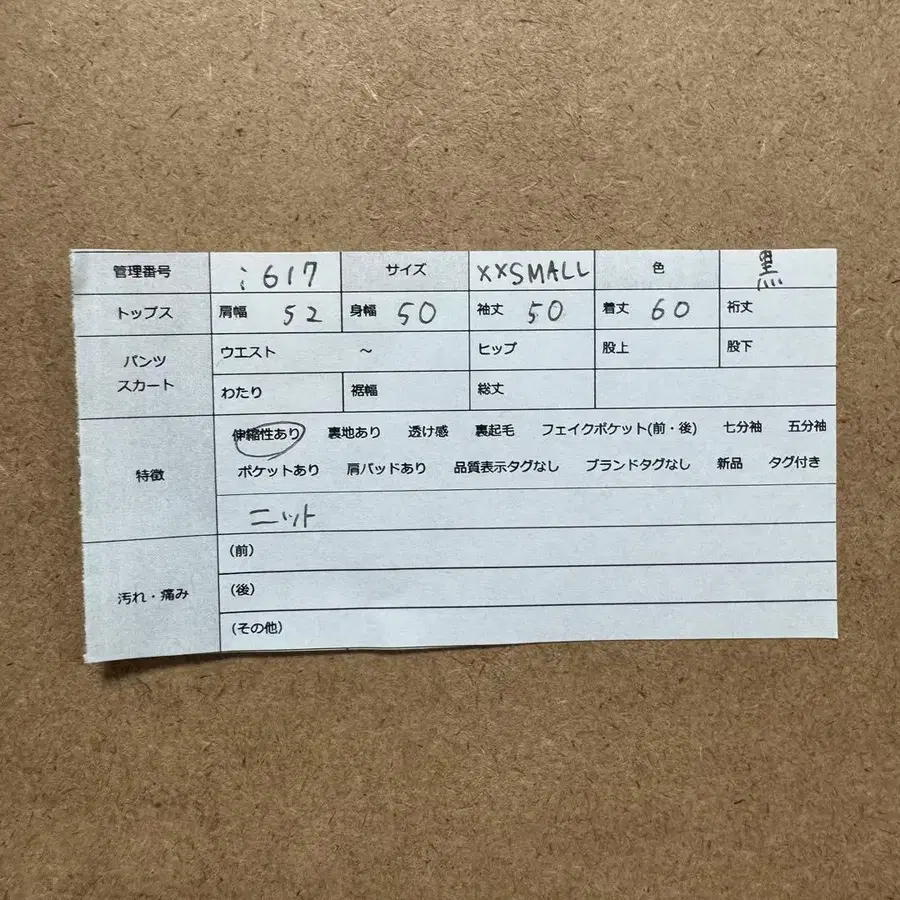 管理番号 i617 サイズ XXSMALL 色 黒
トップス 肩幅 52 身幅 50 袖丈 50 着丈 60 裄丈
パンツ スカート
ウエスト ～ ヒップ 股上 股下
わたり 裾幅 総丈
特徴
伸縮性あり 裏地あり 透け感 裏起毛 フェイクポケット(前・後) 七分袖 五分袖
ポケットあり 肩パッドあり 品質表示タグなし ブランドタグなし 新品 タグ付き
ニット
汚れ・痛み
(前)
(後)
(その他)